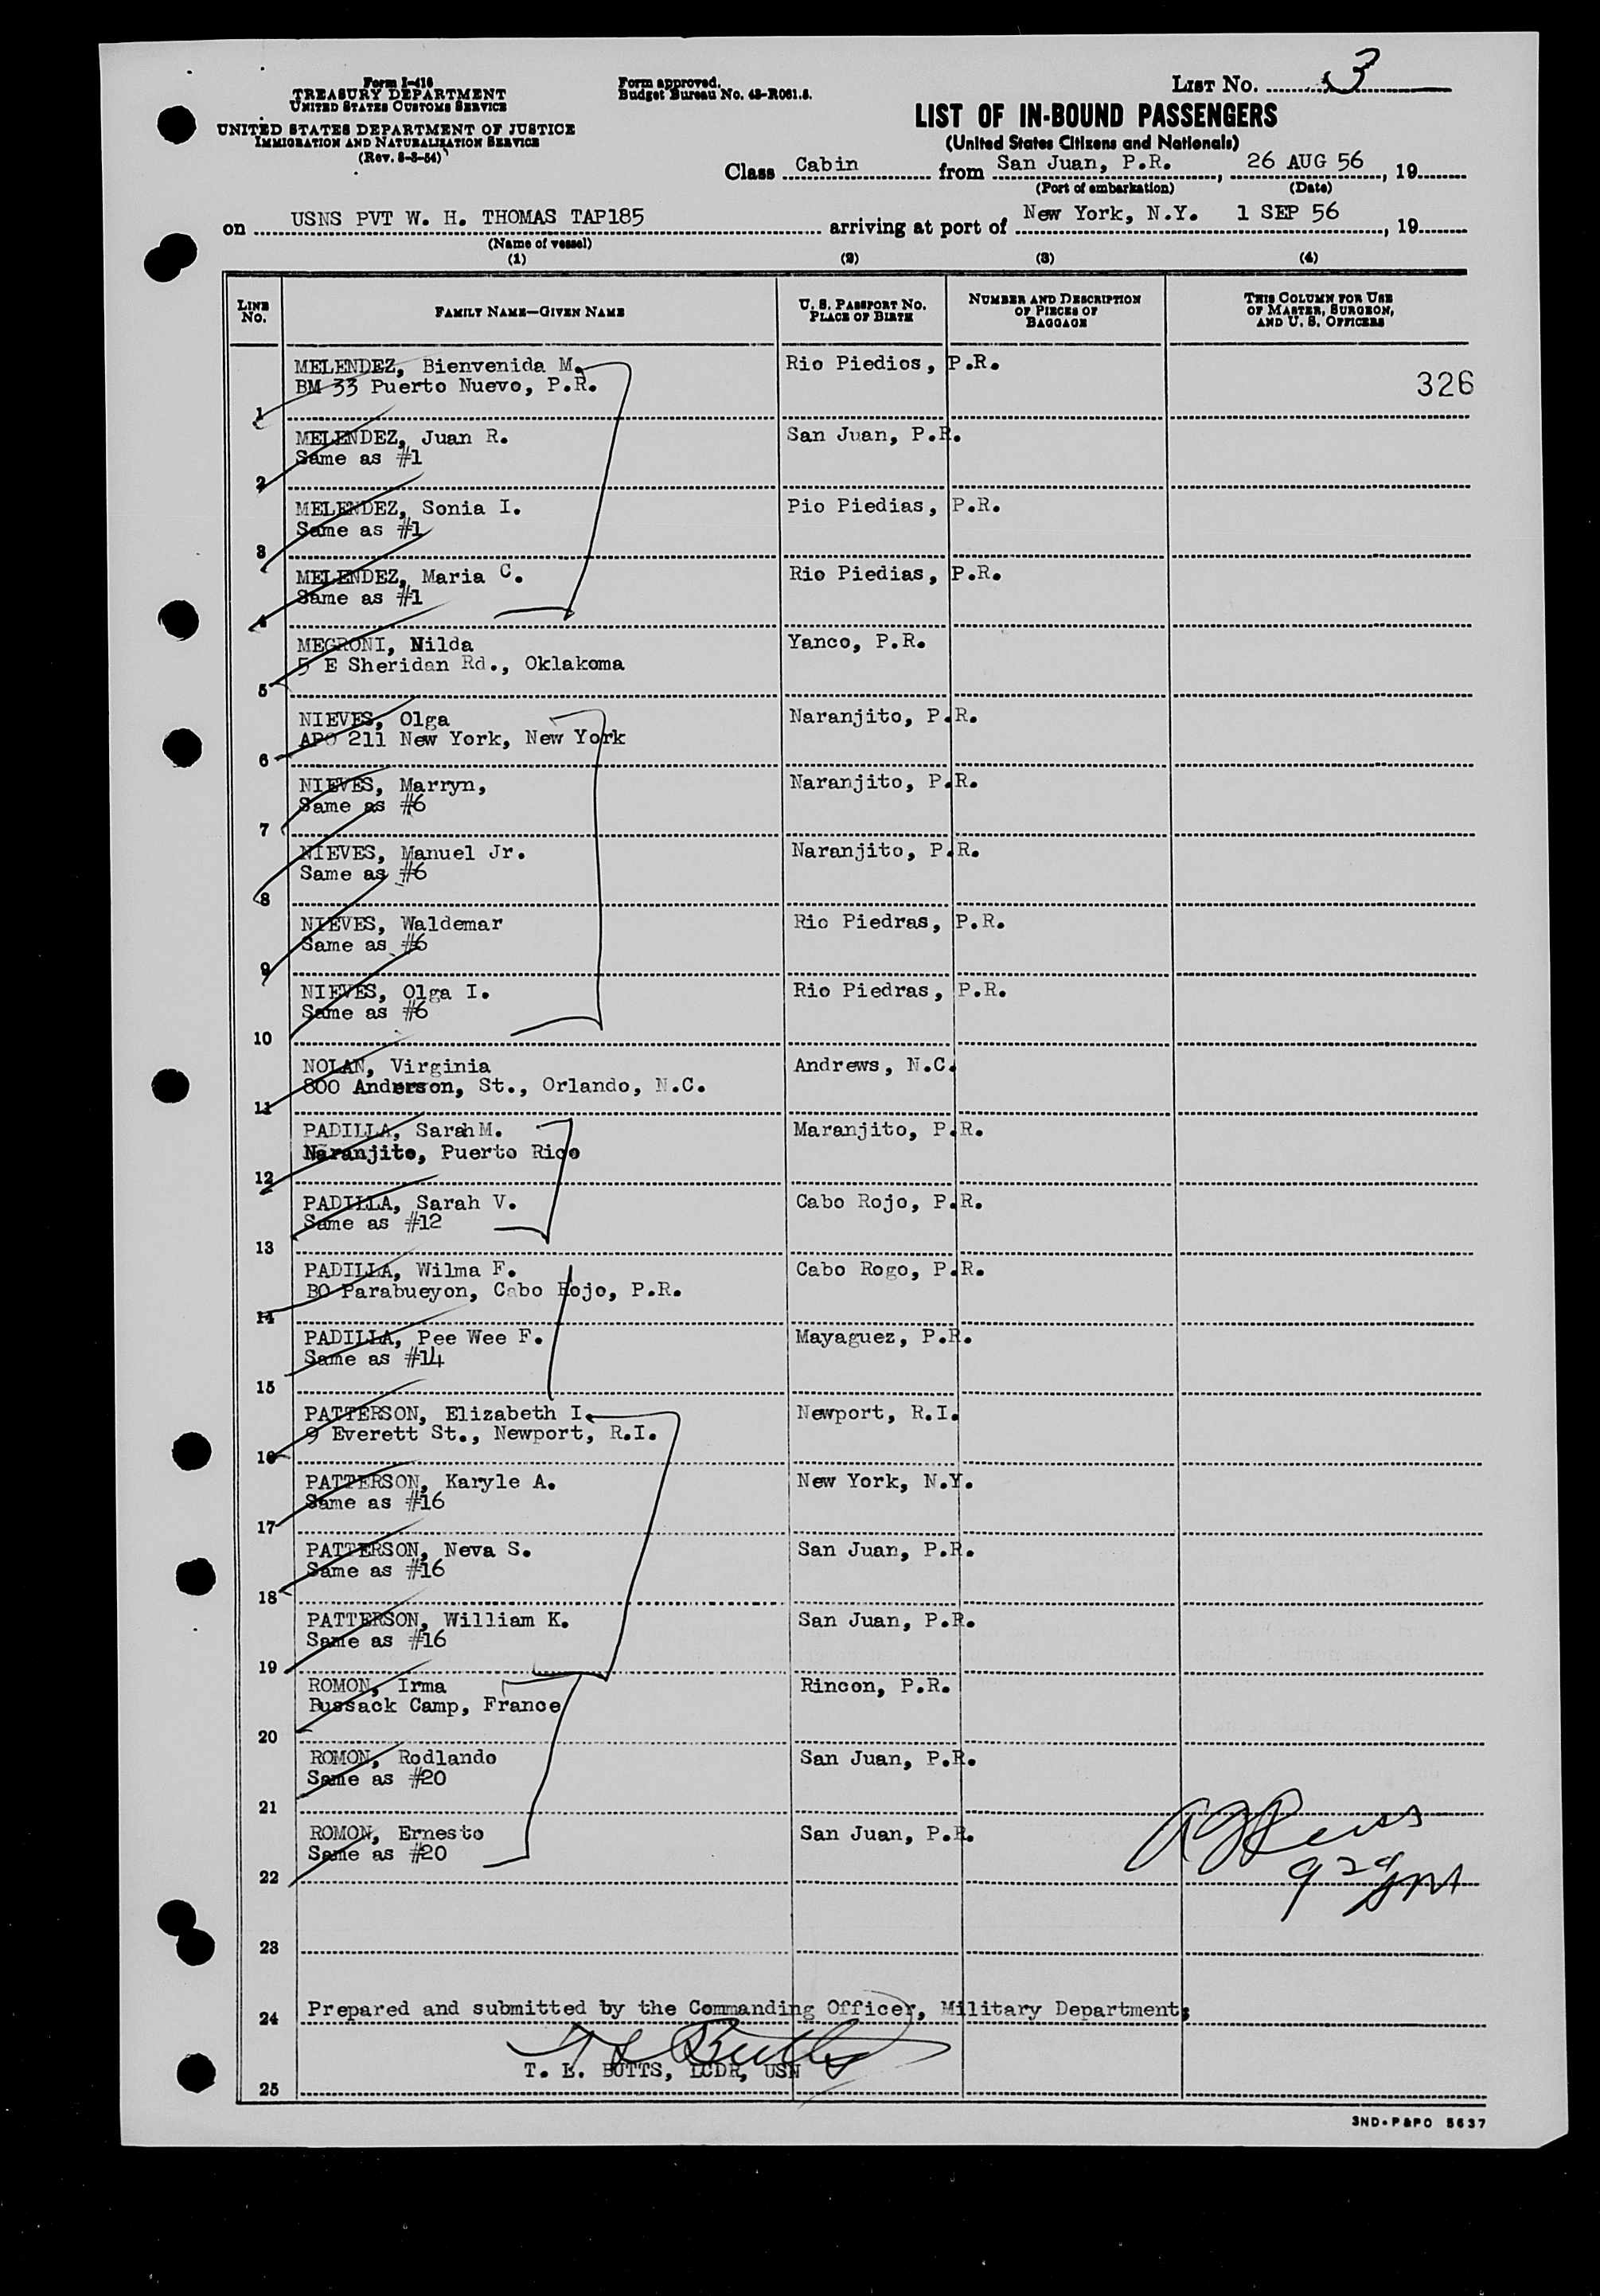 Form I-418
TREASURY DEPARTMENT
UNITED STATES CUSTOMS SERVICE
UNITED STATES DEPARTMENT OF JUSTICE
IMMIGRATION AND NATURALIZATION SERVICE
(Rev. 8-8-54)
Form approved.
Budget Bureau No. 43-R061.8.
LIST No. 3
LIST OF IN-BOUND PASSENGERS
(United States Citizens and Nationals)
Class Cabin from San Juan, P.R., 26 AUG 56, 19
(Port of embarkation) (Date)
on USNS PVT W. H. THOMAS TAP185 arriving at port of New York, N.Y. 1 SEP 56, 19
(Name of vessel)
(1) (2) (3) (4)
LINE No. FAMILY NAME—GIVEN NAME U. S. PASSPORT NO. PLACE OF BIRTH NUMBER AND DESCRIPTION OF PIECES OF BAGGAGE THIS COLUMN FOR USE OF MASTER, SURGEON, AND U. S. OFFICERS
MELENDEZ, Bienvenida M. Rio Piedios, P.R.
1 BM 33 Puerto Nuevo, P.R. 326
MELENDEZ, Juan R. San Juan, P.R.
2 Same as #1
MELENDEZ, Sonia I. Pio Piedias, P.R.
3 Same as #1
MELENDEZ, Maria C. Rio Piedias, P.R.
4 Same as #1
MEGRONI, Nilda Yanco, P.R.
5 5 E Sheridan Rd., Oklakoma
NIEVES, Olga Naranjito, P.R.
6 APO 211 New York, New York
NIEVES, Marryn, Naranjito, P.R.
7 Same as #6
NIEVES, Manuel Jr. Naranjito, P.R.
8 Same as #6
NIEVES, Waldemar Rio Piedras, P.R.
9 Same as #6
NIEVES, Olga I. Rio Piedras, P.R.
10 Same as #6
NOLAN, Virginia Andrews, N.C.
11 800 Anderson, St., Orlando, N.C.
PADILLA, Sarah M. Maranjito, P.R.
12 Naranjito, Puerto Rico
PADILLA, Sarah V. Cabo Rojo, P.R.
13 Same as #12
PADILLA, Wilma F. Cabo Rogo, P.R.
14 BO Parabueyon, Cabo Rojo, P.R.
PADILLA, Pee Wee F. Mayaguez, P.R.
15 Same as #14
PATTERSON, Elizabeth I. Newport, R.I.
16 9 Everett St., Newport, R.I.
PATTERSON, Karyle A. New York, N.Y.
17 Same as #16
PATTERSON, Neva S. San Juan, P.R.
18 Same as #16
PATTERSON, William K. San Juan, P.R.
19 Same as #16
ROMON, Irma Rincon, P.R.
20 Bussack Camp, France
ROMON, Rodlando San Juan, P.R.
21 Same as #20
ROMON, Ernesto San Juan, P.R.
22 Same as #20
23
24 Prepared and submitted by the Commanding Officer, Military Department;
T L Butts
25 T. L. BUTTS, LCDR, USN
3ND-P&PO 5637